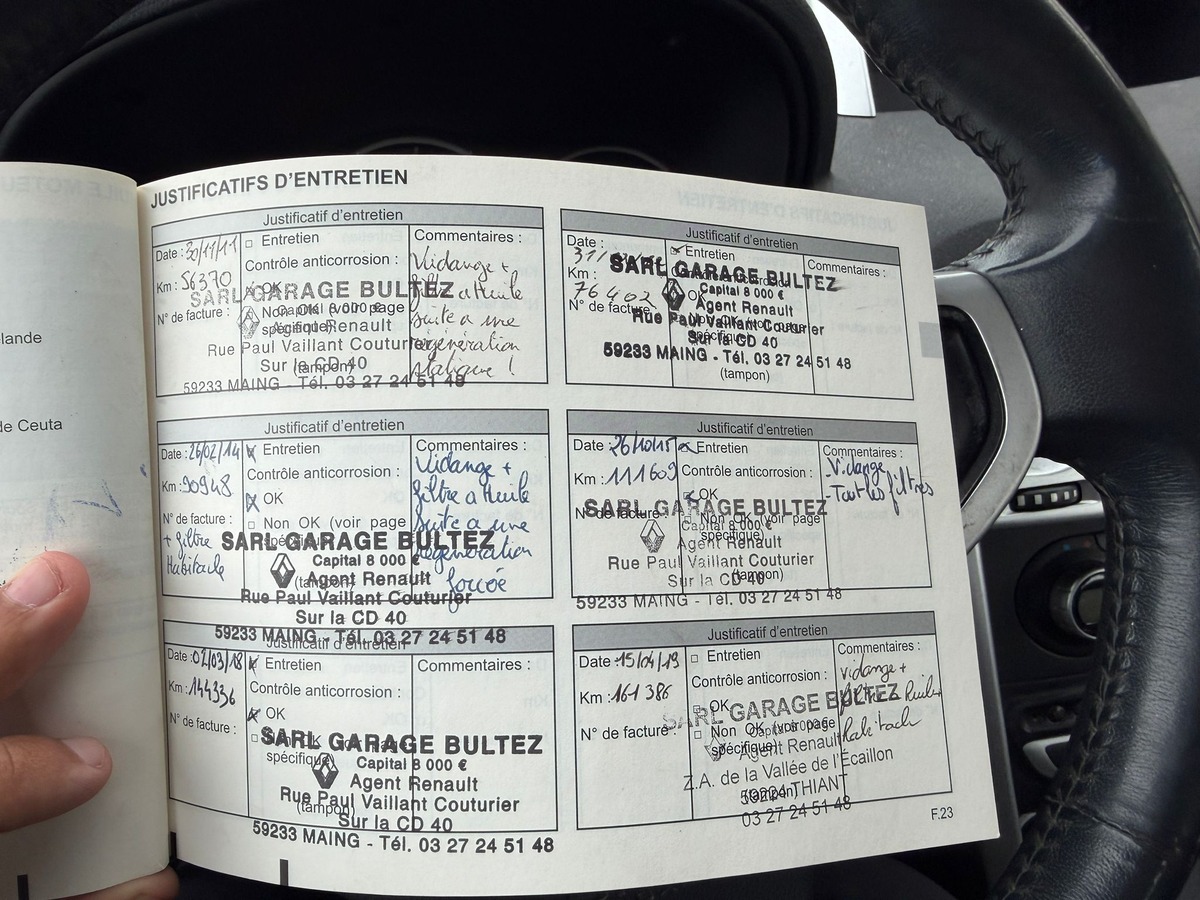 JUSTIFICATIFS D'ENTRETIEN
lande
de Ceuta
Justificatif d'entretien
Date : 30/11/11
Km : 56370
N° de facture :
Entretien
Contrôle anticorrosion :
OK
Non OK (voir page
spécifique)
(tampon)
Commentaires :
Vidange +
filtre a Huile
suite a une
regeneration
statique !
SARL GARAGE BULTEZ
Capital 8 000 €
Agent Renault
Rue Paul Vaillant Couturier
Sur la CD 40
59233 MAING - Tél. 03 27 24 51 48
Justificatif d'entretien
Date :
31/
Km :
76402
N° de facture
Entretien
Commentaires :
OK
spécifique)
(tampon)
SARL GARAGE BULTEZ
Capital 8 000 €
Agent Renault
Rue Paul Vaillant Couturier
Sur la CD 40
59233 MAING - Tél. 03 27 24 51 48
Justificatif d'entretien
Date : 26/02/14
Km : 90948
N° de facture :
+ filtre
Habitacle
Entretien
Contrôle anticorrosion :
OK
Non OK (voir page
spécifique)
(tampon)
Commentaires :
Vidange +
filtre a Huile
suite a une
Regeneration
forcée
SARL GARAGE BULTEZ
Capital 8 000 €
Agent Renault
Rue Paul Vaillant Couturier
Sur la CD 40
59233 MAING - Tél. 03 27 24 51 48
Justificatif d'entretien
Date :
Km : 111609
N° de facture :
Entretien
Contrôle anticorrosion :
OK
Non OK (voir page
spécifique)
(tampon)
Commentaires :
- Vidange
- Tout les filtres
SARL GARAGE BULTEZ
Capital 8 000 €
Agent Renault
Rue Paul Vaillant Couturier
Sur la CD 40
59233 MAING - Tél. 03 27 24 51 48
Justificatif d'entretien
Date : 02/03/18
Km : 144336
N° de facture :
Entretien
Contrôle anticorrosion :
OK
Non OK (voir page
spécifique)
(tampon)
Commentaires :
SARL GARAGE BULTEZ
Capital 8 000 €
Agent Renault
Rue Paul Vaillant Couturier
Sur la CD 40
59233 MAING - Tél. 03 27 24 51 48
Justificatif d'entretien
Date : 15/04/19
Km : 161 386
N° de facture :
Entretien
Contrôle anticorrosion :
OK
Non OK (voir page
spécifique)
(tampon)
Commentaires :
vidange +
SARL GARAGE BULTEZ
Agent Renault
Z.A. de la Vallée de l'Écaillon
THIANT
03 27 24 51 48
F.23